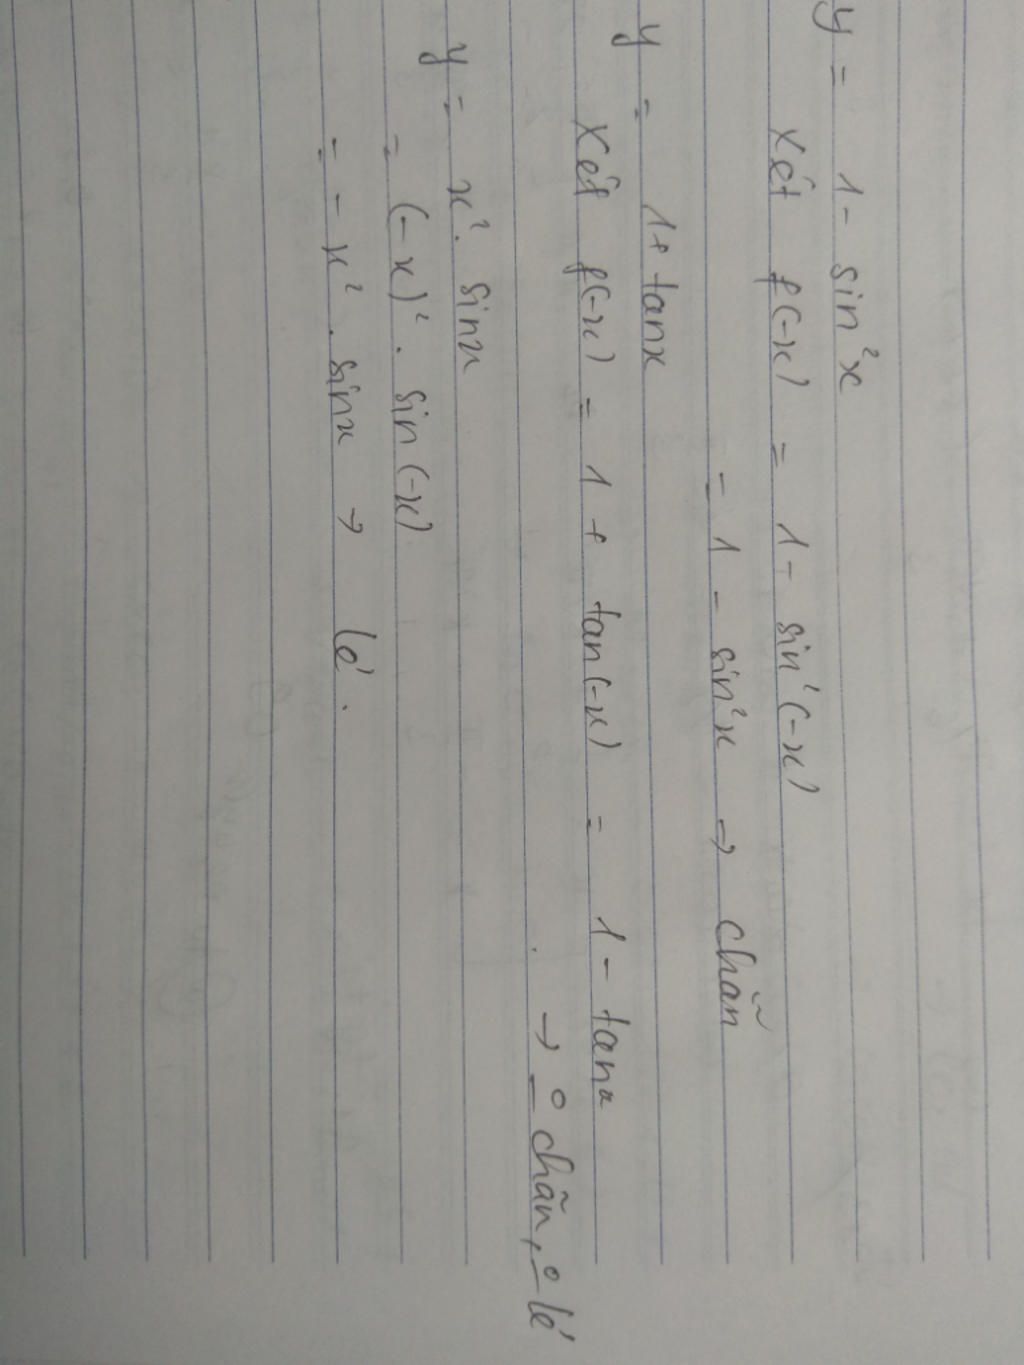 y = 1 - sin²x
Xét f(-x) = 1 - sin²(-x)
= 1 - sin²x → chẵn
y = 1 + tanx
Xét f(-x) = 1 + tan(-x) = 1 - tanx
→ o chẵn, o lẻ
y = x² . sinx
= (-x)² . sin(-x)
= - x² . sinx → lẻ.